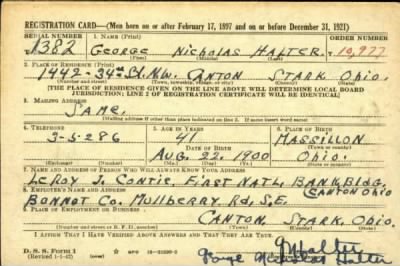 REGISTRATION CARD—(Men born on or after February 17, 1897 and on or before December 31, 1921)
SERIAL NUMBER 1. NAME (Print) ORDER NUMBER
1382 GEORGE NICHOLAS HALTER 10,977
(First) (Middle) (Last)
2. PLACE OF RESIDENCE (Print)
1442-34th St. N.W. CANTON STARK OHIO.
(Number and street) (Town, township, village, or city) (County) (State)
[THE PLACE OF RESIDENCE GIVEN ON THE LINE ABOVE WILL DETERMINE LOCAL BOARD
JURISDICTION; LINE 2 OF REGISTRATION CERTIFICATE WILL BE IDENTICAL]
3. MAILING ADDRESS
SAME.
[Mailing address if other than place indicated on line 2. If same insert word same]
4. TELEPHONE 5. AGE IN YEARS 6. PLACE OF BIRTH
3-5286 41 MASSILLON
DATE OF BIRTH (Town or county)
AUG. 22, 1900 OHIO.
(Exchange) (Number) (Mo.) (Day) (Yr.) (State or country)
7. NAME AND ADDRESS OF PERSON WHO WILL ALWAYS KNOW YOUR ADDRESS
LEROY J. CONTIE, FIRST NATL. BANK BLDG.
CANTON OHIO
8. EMPLOYER'S NAME AND ADDRESS
BONNOT CO. MULLBERRY RD. S.E.
9. PLACE OF EMPLOYMENT OR BUSINESS
CANTON, STARK, OHIO.
(Number and street or R. F. D. number) (Town) (County) (State)
I AFFIRM THAT I HAVE VERIFIED ABOVE ANSWERS AND THAT THEY ARE TRUE.
D. S. S. Form 1
(Revised 1-1-42) (over)
George Nicholas Halter